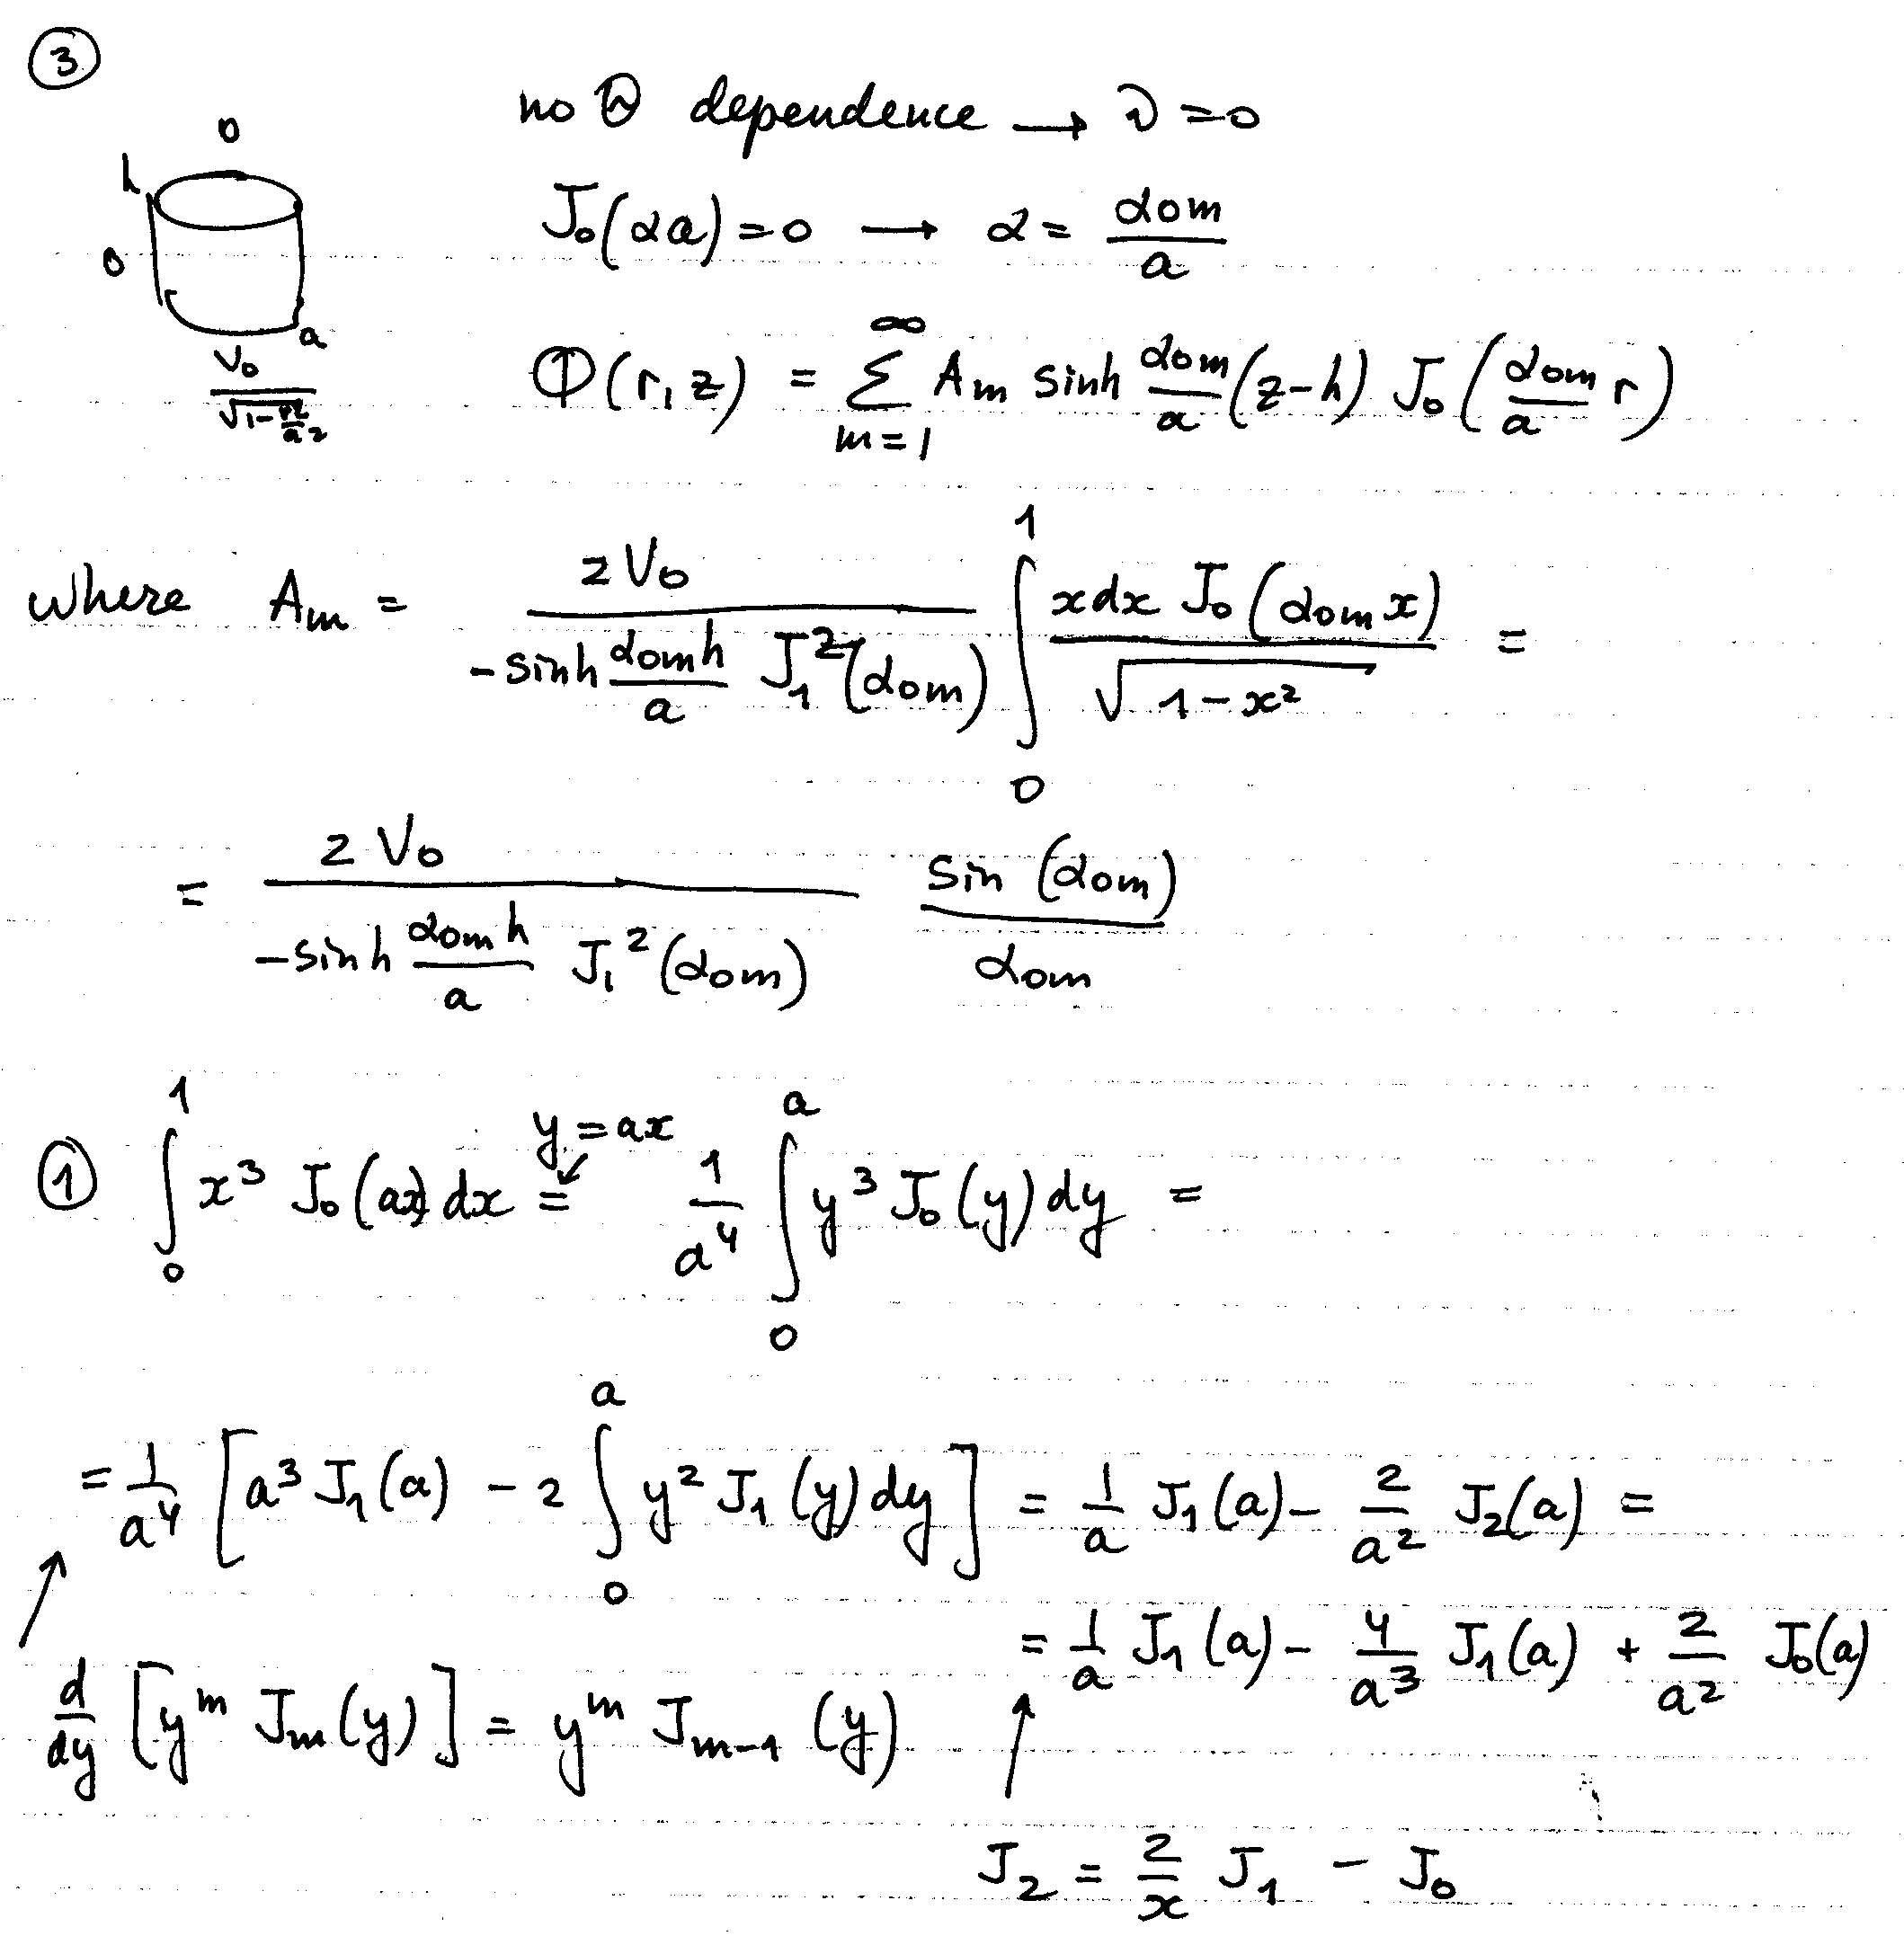 ③
no Θ dependence → ν = 0
0
h
J₀(αa) = 0 → α = α₀ₘ/a
0
a
V₀/√(1 - r²/a²)
Φ(r, z) = ∑_{m=1}^{∞} Aₘ sinh α₀ₘ/a (z-h) J₀(α₀ₘ/a r)
where Aₘ = 2V₀/(-sinh α₀ₘh/a J₁²(α₀ₘ)) ∫₀¹ x dx J₀(α₀ₘ x)/√(1-x²) =
= 2V₀/(-sinh α₀ₘh/a J₁²(α₀ₘ)) sin(α₀ₘ)/α₀ₘ
① ∫₀¹ x³ J₀(ax) dx = 1/a⁴ ∫₀ᵃ y³ J₀(y) dy =
y = ax
= 1/a⁴ [a³ J₁(a) - 2 ∫₀ᵃ y² J₁(y) dy] = 1/a J₁(a) - 2/a² J₂(a) =
= 1/a J₁(a) - 4/a³ J₁(a) + 2/a² J₀(a)
d/dy [yᵐ Jₘ(y)] = yᵐ Jₘ₋₁(y)
J₂ = 2/x J₁ - J₀